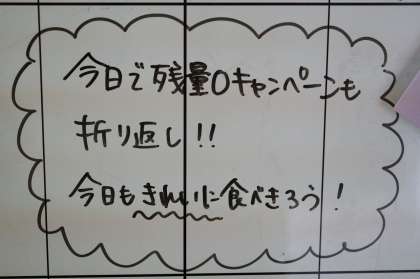 今日で残量0キャンペーンも
折り返し!!
今日もきれいに食べきろう!